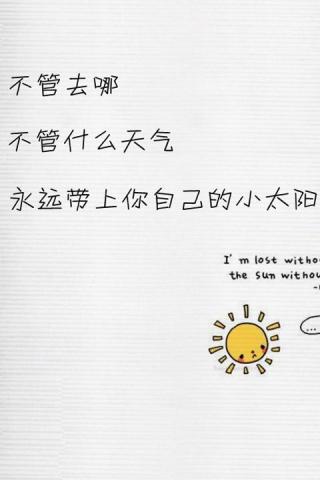 不管去哪
不管什么天气
永远带上你自己的小太阳
I'm lost witho
the sun withou
...